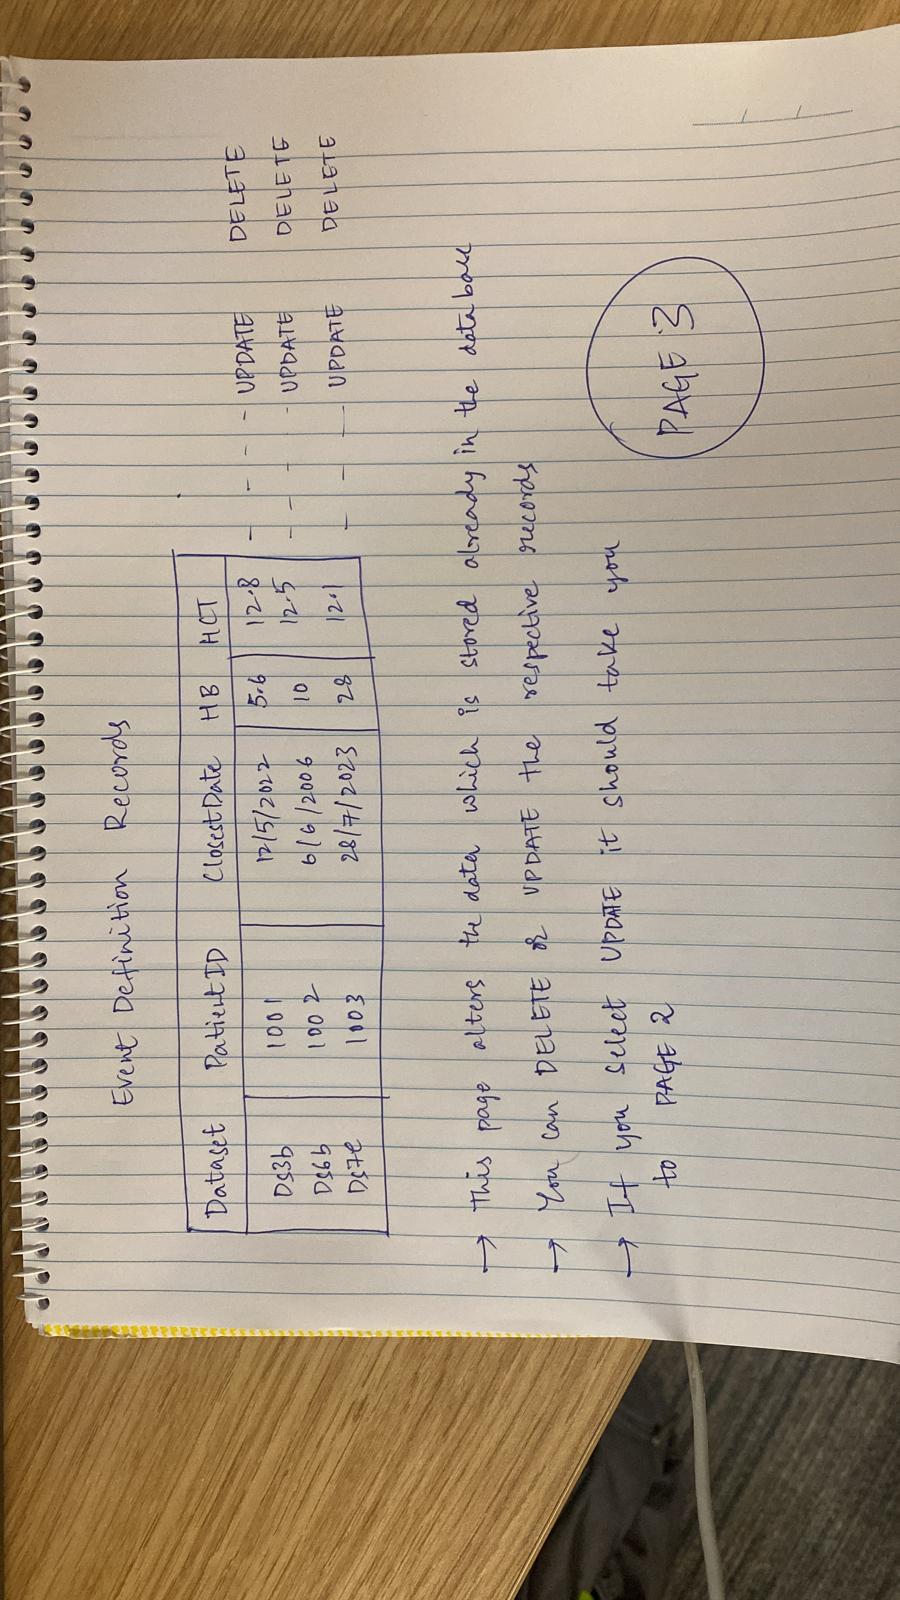 Event Definition Records
Dataset PatientID ClosestDate HB HCT
DS3b 1001 12/5/2022 5.6 12.8 - - - - UPDATE DELETE
DS6b 1002 6/6/2006 10 12.5 - - - - UPDATE DELETE
DS7e 1003 28/7/2023 28 12.1 - - - UPDATE DELETE
→ This page alters the data which is stored already in the database
→ You can DELETE or UPDATE the respective records
→ If you select UPDATE it should take you
to PAGE 2
PAGE 3